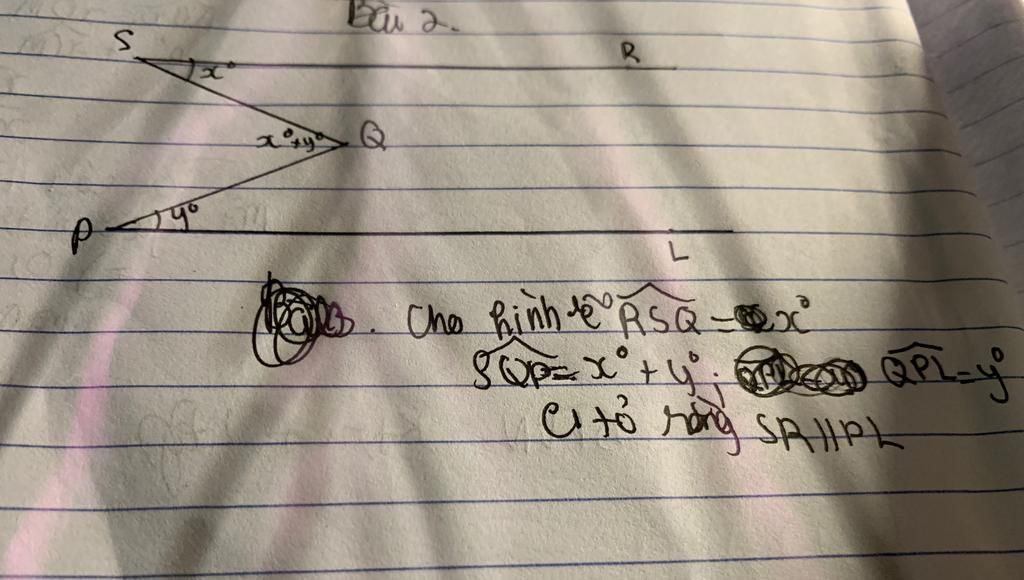 Bài 2.
S
x°
R
x°+y°
Q
P
y°
L
Cho hình vẽ RSQ = x°
SQP = x° + y° ; QPL = y°
C/tỏ rằng SR//PL